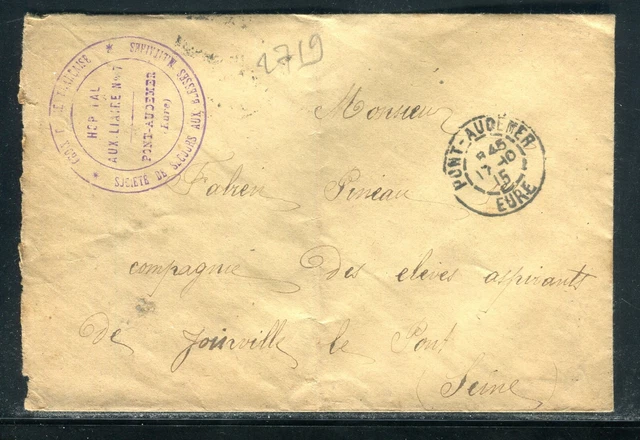 2719
CROIX ROUGE FRANÇAISE * SOCIÉTÉ DE SECOURS AUX BLESSÉS MILITAIRES *
HOPITAL
AUXILIAIRE No 7
PONT-AUDEMER
(Eure)
PONT-AUDEMER
8 45
17-10
15
EURE
Monsieur
Fabien Pineau
compagnie des eleves aspirants
de Joinville le Pont
(Seine)